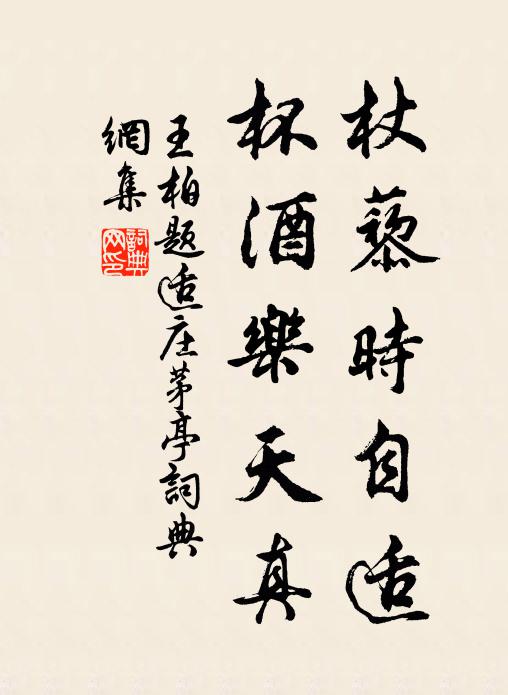 杖藜時自适
杯酒樂天真
王柏題适庄茅亭詞典
網集
詞典
网印